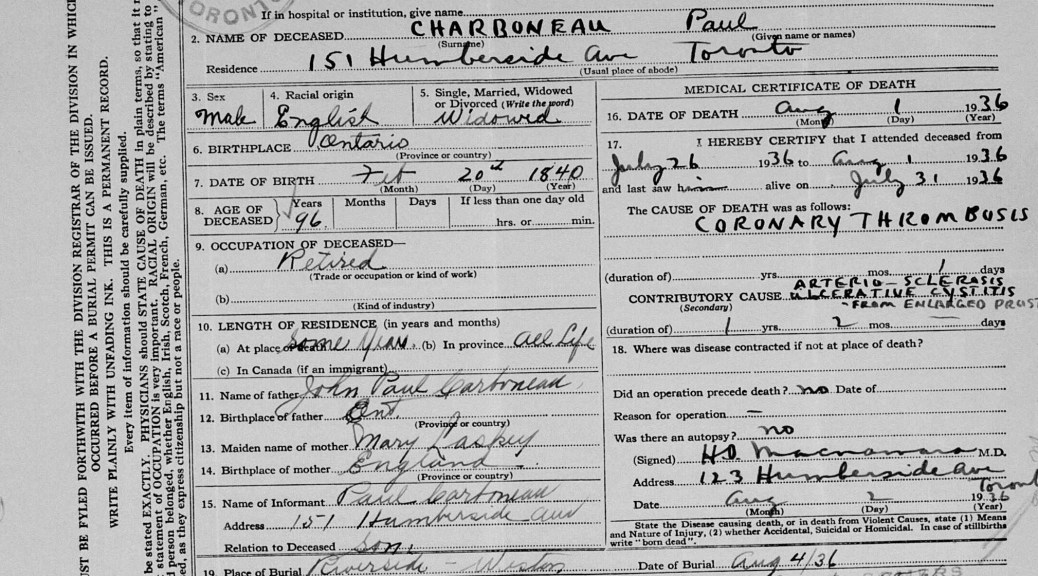 TORONTO
If in hospital or institution, give name
2. NAME OF DECEASED CHARBONEAU Paul
(Surname) (Given name or names)
Residence 151 Humberside Ave Toronto
(Usual place of abode)
3. Sex Male
4. Racial origin English
5. Single, Married, Widowed
or Divorced (Write the word)
Widowed
6. BIRTHPLACE Ontario
(Province or country)
7. DATE OF BIRTH Feb 20th 1840
(Month) (Day) (Year)
8. AGE OF DECEASED Years 96 Months Days If less than one day old
hrs. or min.
9. OCCUPATION OF DECEASED—
(a) Retired
(Trade or occupation or kind of work)
(b)
(Kind of industry)
10. LENGTH OF RESIDENCE (in years and months)
(a) At place Some Years (b) In province All Life
(c) In Canada (if an immigrant)
11. Name of father John Paul Carboneau
12. Birthplace of father Ont
(Province or country)
13. Maiden name of mother Mary
14. Birthplace of mother England
(Province or country)
15. Name of Informant Paul Carboneau
Address 151 Humberside Ave
Relation to Deceased Son
19. Place of Burial Riverside - Weston
MEDICAL CERTIFICATE OF DEATH
16. DATE OF DEATH Aug 1 1936
(Month) (Day) (Year)
17. I HEREBY CERTIFY that I attended deceased from
July 26 1936 to Aug 1 1936
and last saw him alive on July 31 1936
The CAUSE OF DEATH was as follows:
CORONARY THROMBUSIS
(duration of) yrs. mos. 1 days
ARTERIO-SCLEROSIS
CONTRIBUTORY CAUSE ULCERATIVE CYSTITIS
(Secondary) -FROM ENLARGED PROST
(duration of) 1 yrs. 2 mos. — days
18. Where was disease contracted if not at place of death?
Did an operation precede death? no Date of
Reason for operation —
Was there an autopsy? no
(Signed) HD Macnamara M.D.
Address 123 Humberside Ave
Toronto
Date Aug 2 1936
(Month) (Day) (Year)
State the Disease causing death, or in death from Violent Causes, state (1) Means
and Nature of Injury, (2) whether Accidental, Suicidal or Homicidal. In case of stillbirths
write "born dead".
Date of Burial Aug 4/36
UST BE FYLED FORTHWITH WITH THE DIVISION REGISTRAR OF THE DIVISION IN WHICH
OCCURRED BEFORE A BURIAL PERMIT CAN BE ISSUED.
WRITE PLAINLY WITH UNFADING INK. THIS IS A PERMANENT RECORD.
Every item of information should be carefully supplied.
be stated EXACTLY. PHYSICIANS should STATE CAUSE OF DEATH in plain terms, so that it
statement of OCCUPATION is very important. RACIAL ORIGIN will be described by stating to
person belonged, whether English, Irish, Scotch, French, German, etc. The terms "American"
ed, as they express citizenship but not a race or people.